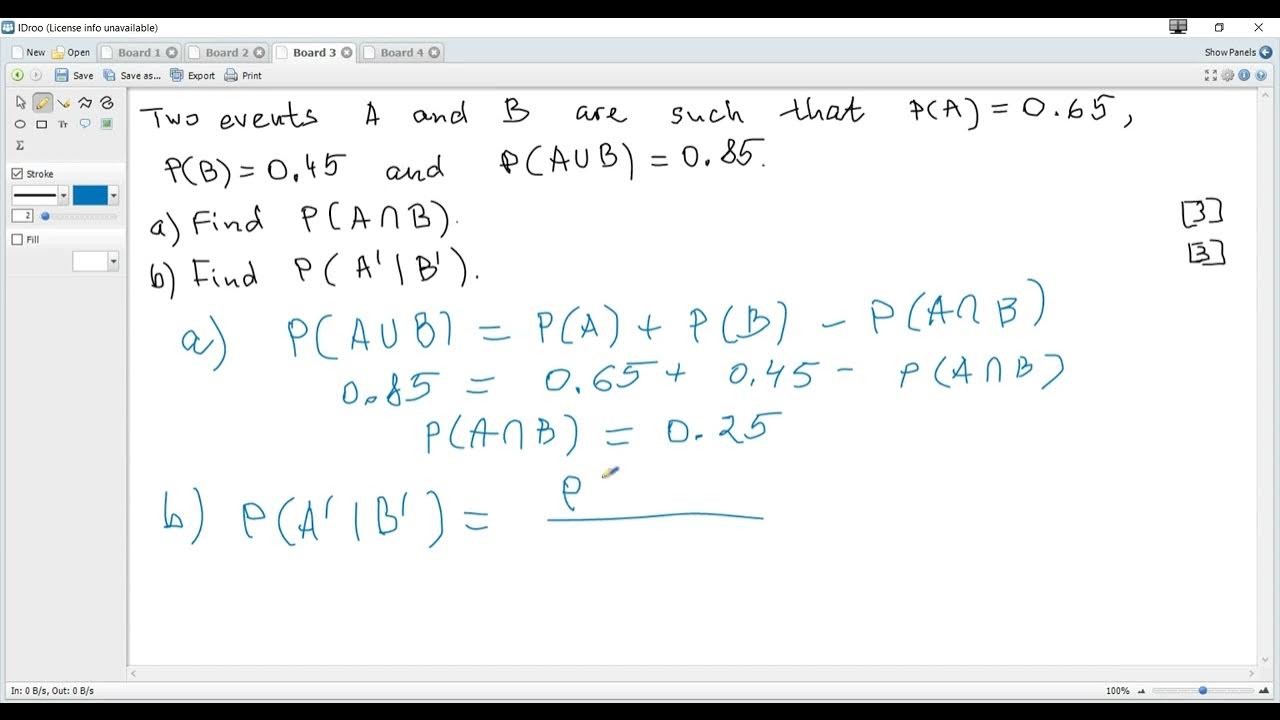 IDroo (License info unavailable)
New Open Board 1 Board 2 Board 3 Board 4 Show Panels
Save Save as... Export Print
Tr
Σ
Stroke
2
Fill
Two events A and B are such that P(A) = 0.65,
P(B) = 0.45 and P(A∪B) = 0.85.
a) Find P(A∩B). [3]
b) Find P(A'|B'). [3]
a) P(A∪B) = P(A) + P(B) - P(A∩B)
0.85 = 0.65 + 0.45 - P(A∩B)
P(A∩B) = 0.25
P
b) P(A'|B') =
In: 0 B/s, Out: 0 B/s 100%